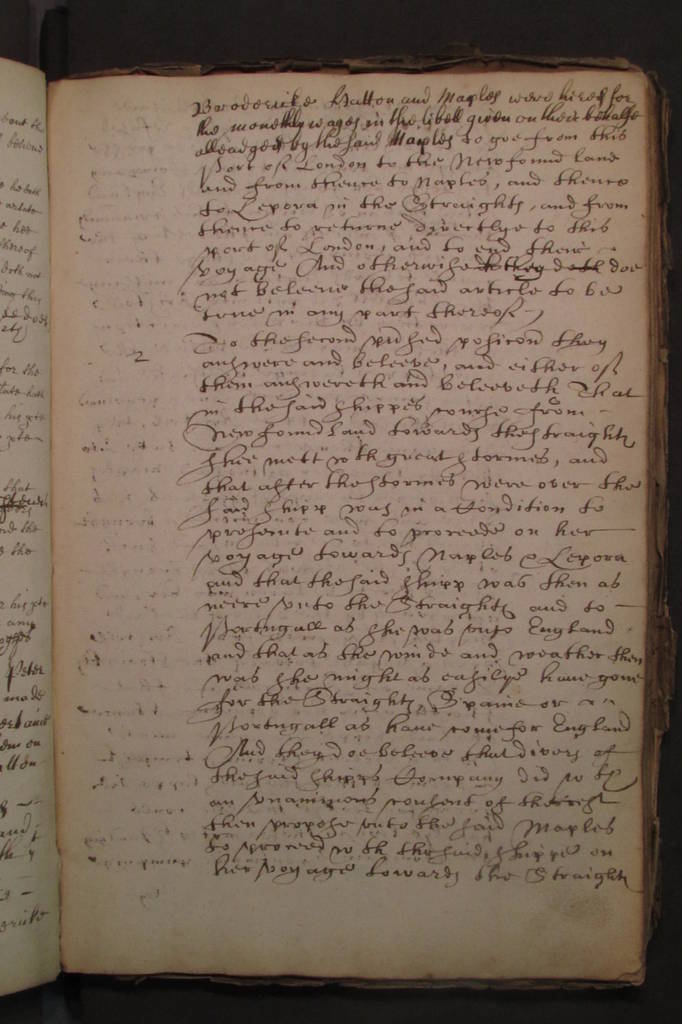 Brodericke Hatton and Maples were hired for
the monethly wages in the libell given on their behalfe
alleadged by the said Maples to goe from this
Port of London to the Newfound land
and from thence to Naples, and thence
to Lepora in the Straights, and from
thence to returne directlye to this
port of London, and to end their
voyage And otherwise they doe
not beleeve the said article to be
true in any part thereof
2 To the second posicon they
answere and beleeve, and either of
them answereth and beleeveth That
in the said shippes course from
Newfound Land towards the straights
shee mett wth great stormes, and
that after the stormes were over the
said shipp was in a Condition to
prosecute and to proceede on her
voyage towards Naples & Lepora
and that the said shipp was then as
neere vnto the Straights and to
Portugall as she was vnto England
and that as the winde and weather then
was she might as easilye have gone
for the Straights, Spaine or
Portugall as have come for England
And they doe beleeve that divers of
the said shipps Company did wth
an vnanimous consent of the rest
then propose vnto the said Maples
to proceed wth the said shippe on
her voyage towards the Straights